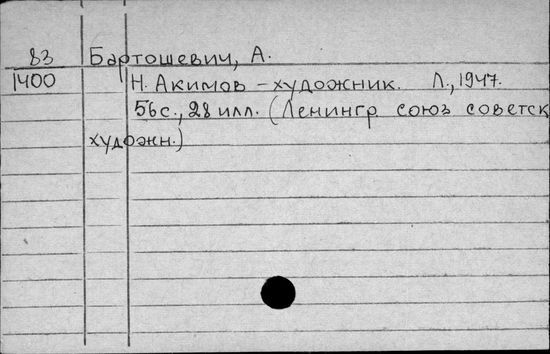 83 Бартошевич, А.
1400 Н. Акимов - художник. Л., 1947.
56 с., 28 илл. (Ленингр. союз советск.
художн.)